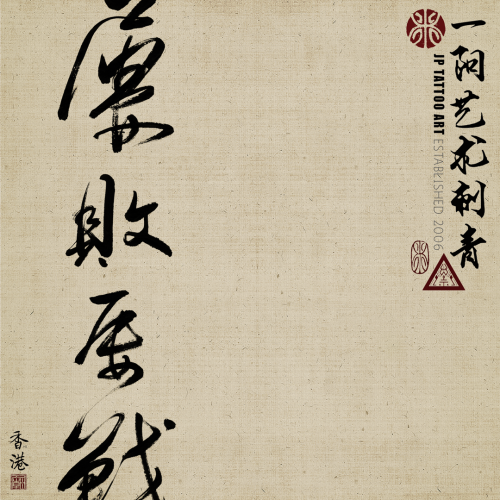 一阳艺术刺青
JP TATTOO ART ESTABLISHED 2006
屢敗屡戰
香港